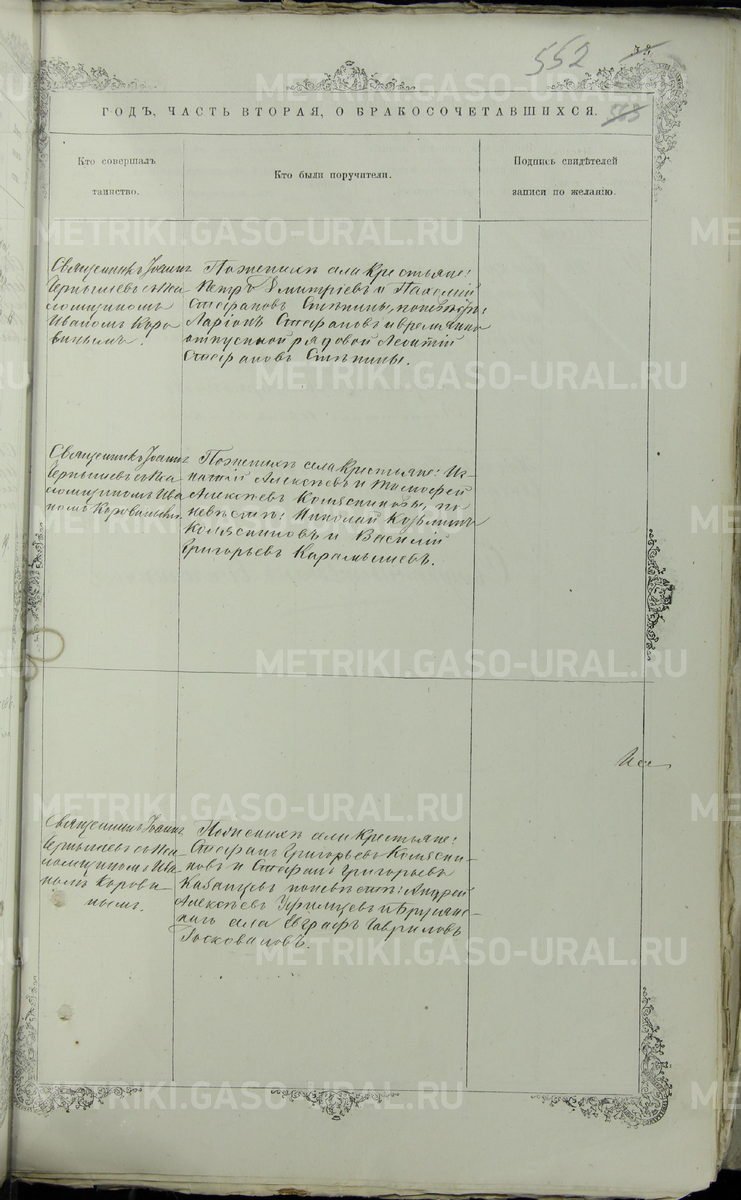 552
ГОДЪ, ЧАСТЬ ВТОРАЯ, О БРАКОСОЧЕТАВШИХСЯ.
Кто совершалъ
таинство.
Кто были поручители.
Подпись свидѣтелей
записи по желанію.
Священникъ Іоаннъ
Чернышевъ съ Пса
ломщикомъ
Иваномъ Коро
винымъ.
По жениху села крестьяне:
Петръ Дмитріевъ и
Стефановъ по невѣстѣ:
Ларіонъ Стефановъ и временно
отпускной рядовой Леонтій
Стефановъ
Священникъ Іоаннъ
Чернышевъ съ Пса
ломщикомъ Ива
номъ Коровинымъ.
По жениху села крестьяне: Иг
натій Алексѣевъ и Тимофей
Алексѣевъ Комяснины, по
невѣстѣ: Николай Козьминъ
Комяснинъ и Василій
Григорьевъ Карамышевъ.
Священникъ Іоаннъ
Чернышевъ съ Пса
ломщикомъ Ива
номъ Корови
нымъ.
По жениху села крестьяне:
Стефанъ Григорьевъ
и Стефанъ Григорьевъ
Кабанцевъ по невѣстѣ: Андрей
Алексѣевъ Уфимцевъ и
села Евграфъ Гавриловъ
METRIKI.GASO-URAL.RU